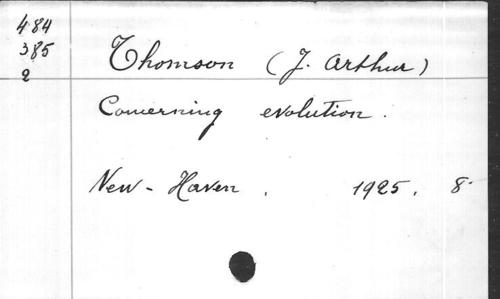 484
385
2
Thomson (J. Arthur)
Concerning evolution.
New-Haven. 1925. 8°